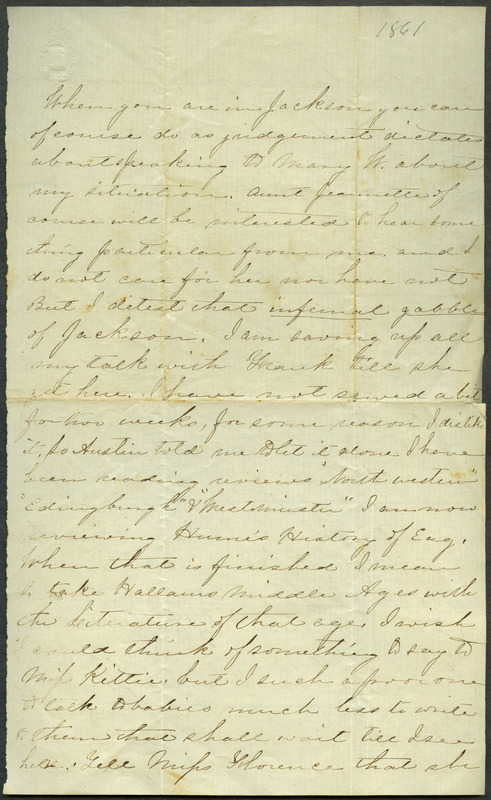 1861
When you are in Jackson you can
of course do as judgement dictates
about speaking to Mary W. about
my situation. Aunt Jeannette of
course will be interested to hear some
thing particular from me, and I
do not care for her nor have not
But I detest that infernal gabble
of Jackson. I am saving up all
my talk with Frank till she
get here. I have not sewed a bit
for two weeks, for some reason I dislike
it, so Austin told me to let it alone I have
been reading reviews, "North western"
"Edingburgh" & "Westminster" I am now
reviewing Hume's History of Eng.
When that is finished I mean
to take Hallams Middle Ages with
the Literature of that age. I wish
I could think of something to say to
Miss Kittie, but I such a poor one
to talk to babies much less to write
to them that shall wait till I see
her. Tell Miss Florence that she